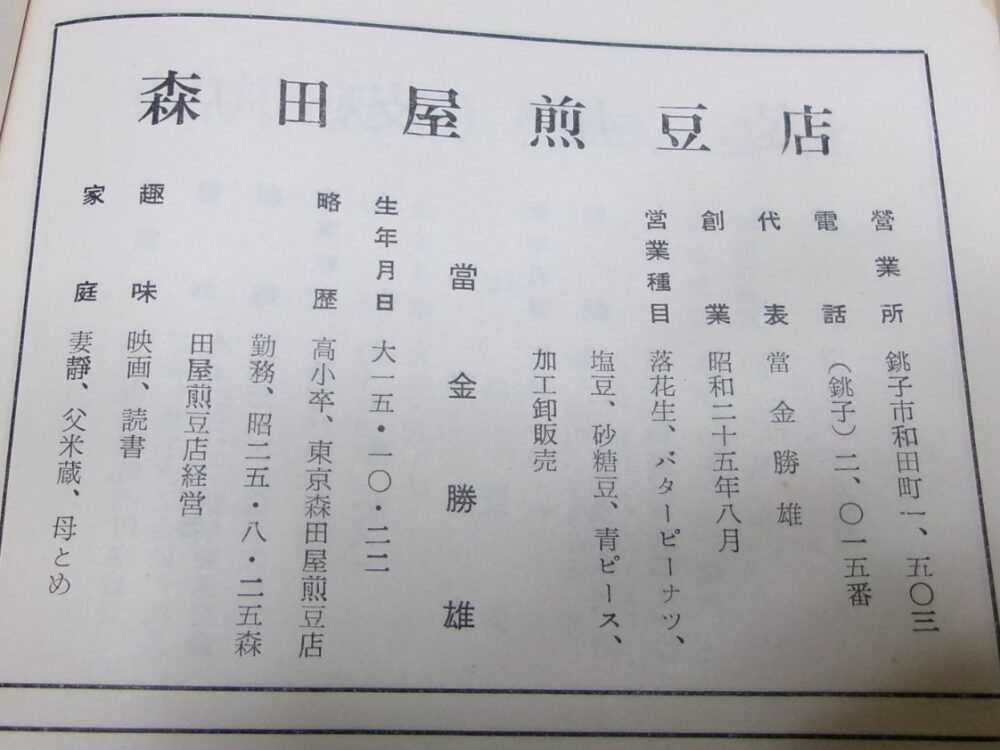 森田屋煎豆店
營業所 銚子市和田町一、五〇三
電話 (銚子)二、〇一五番
代表 當金勝雄
創業 昭和二十五年八月
営業種目 落花生、バターピーナツ、
塩豆、砂糖豆、青ピース、
加工卸販売
當金勝雄
生年月日 大一五・一〇・二二
略歴 高小卒、東京森田屋煎豆店
勤務、昭二五・八・二五森
田屋煎豆店経営
趣味 映画、読書
家庭 妻靜、父米蔵、母とめ